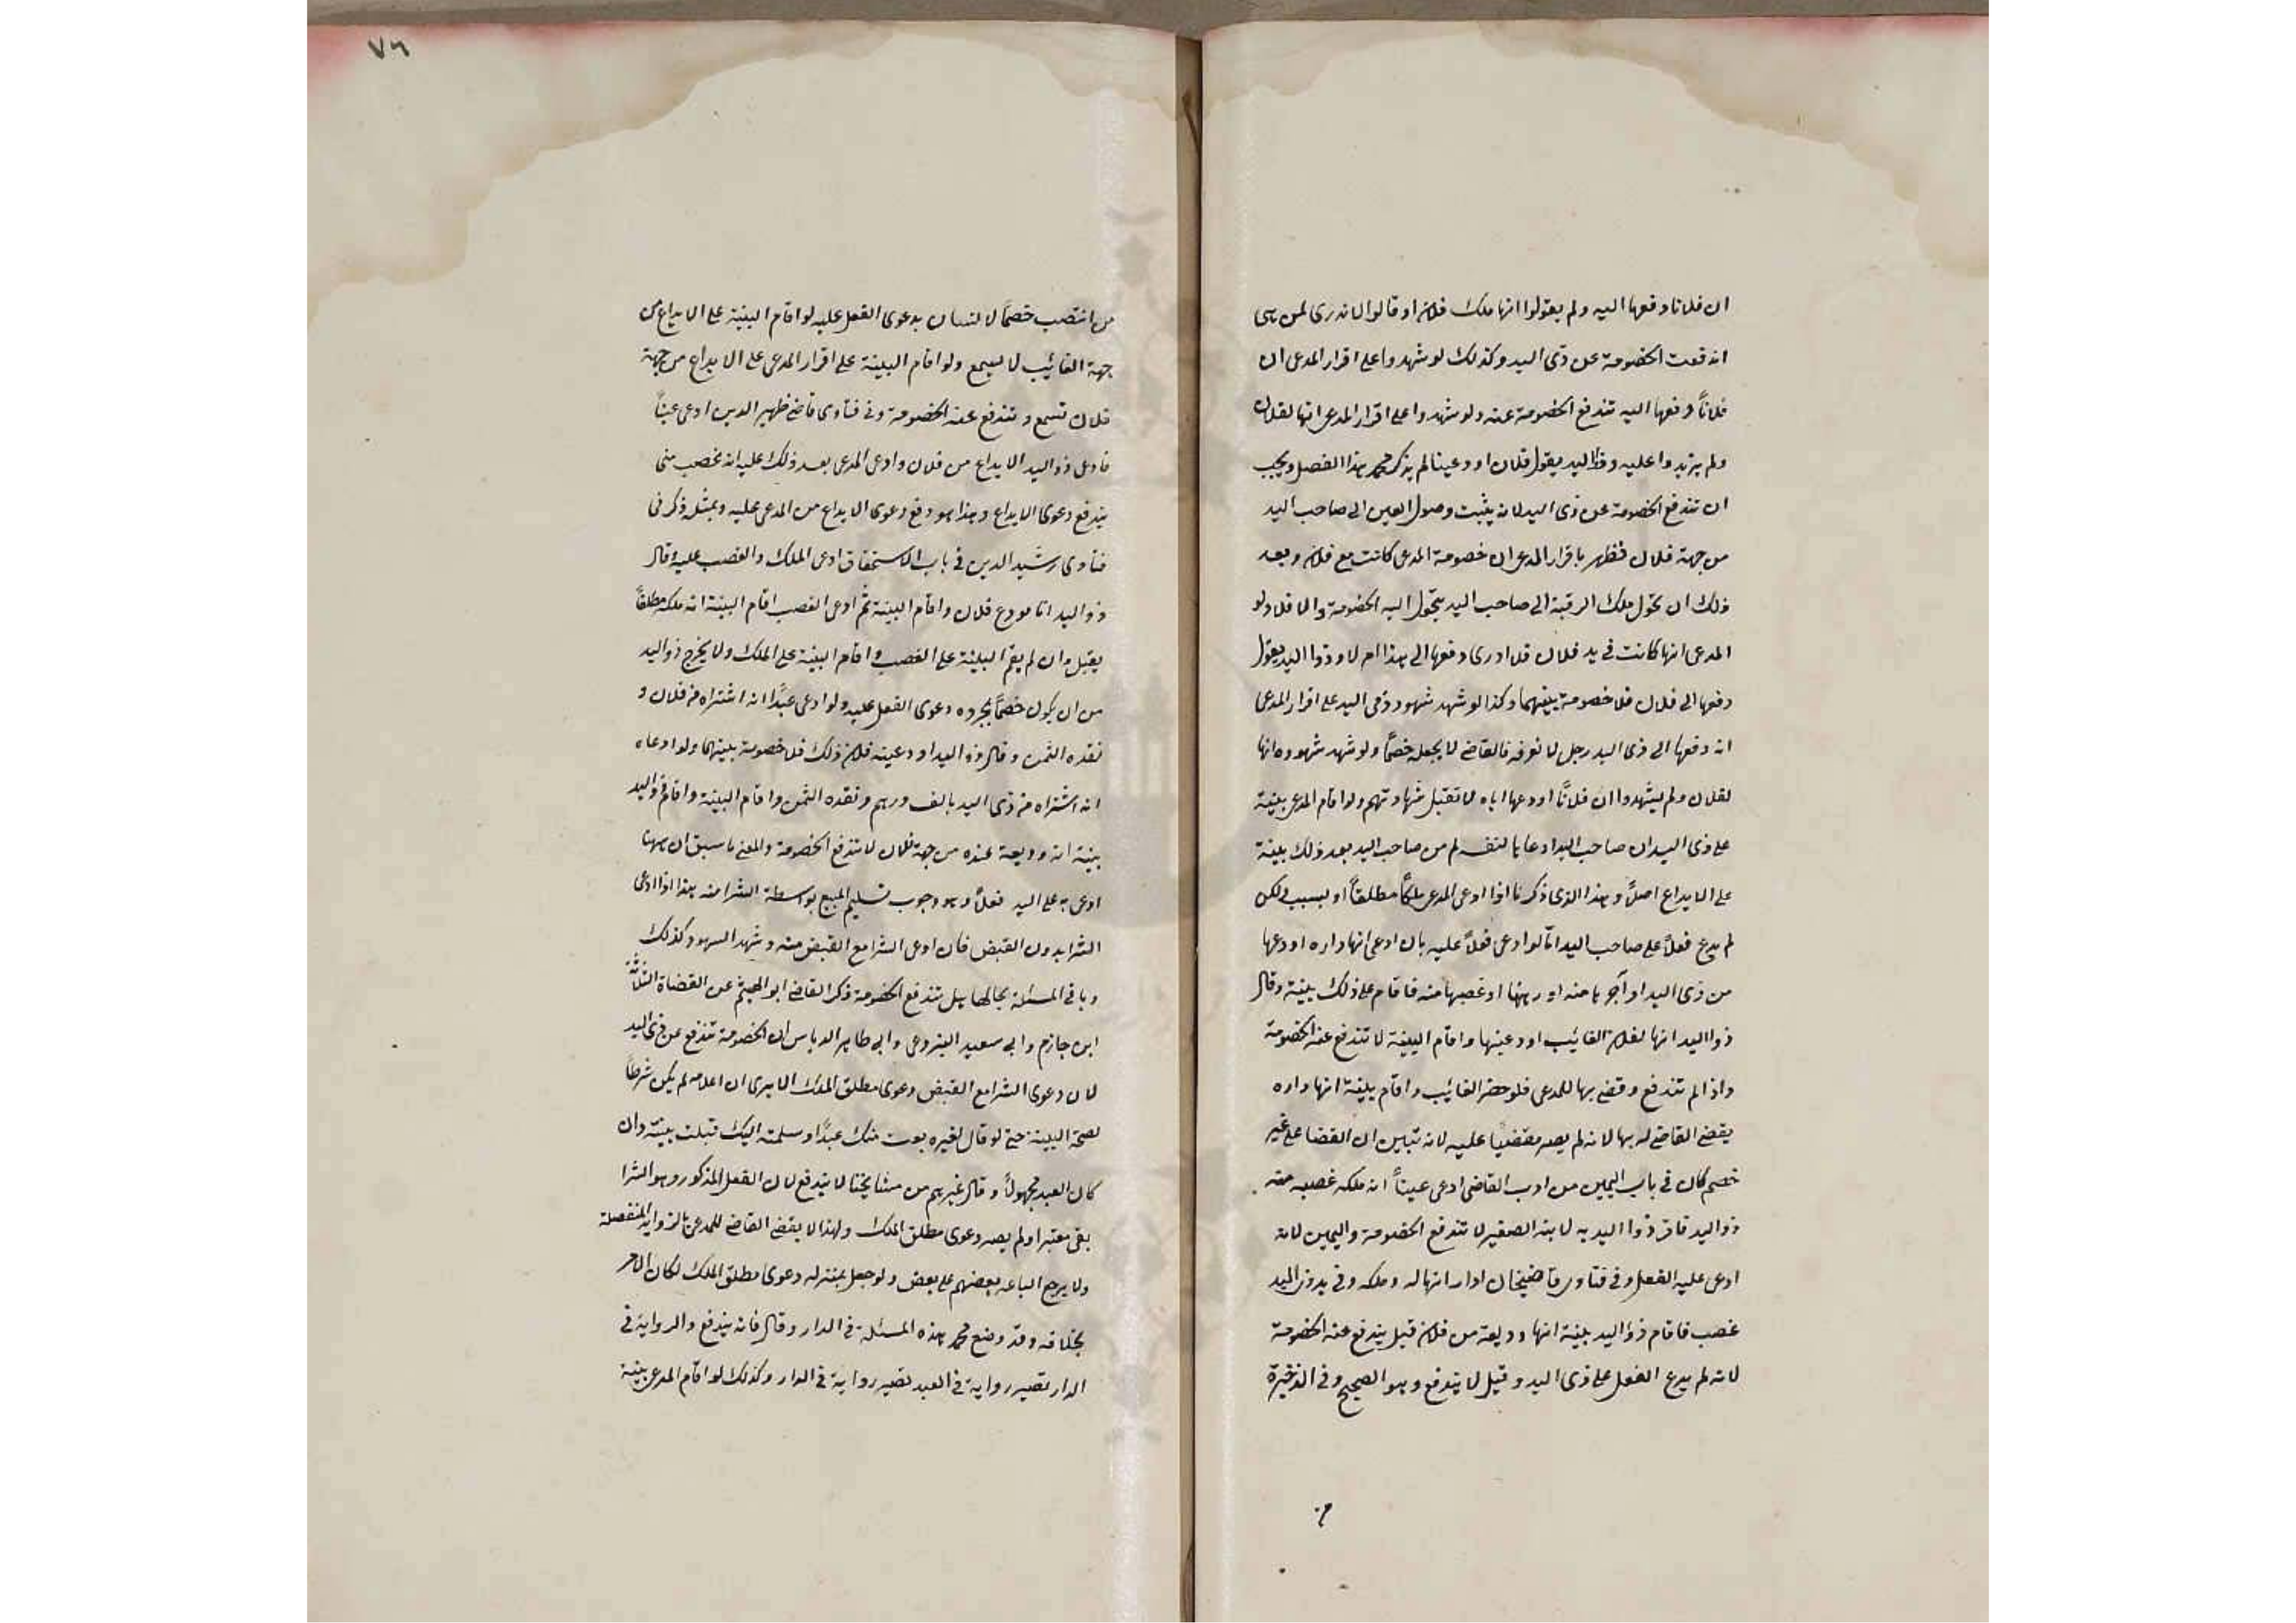 ان فلانا دفعها اليه ولم يقولوا انها ملك فلان او قالوا لا ندري لمن هي
اندفعت الخصومة عن ذي اليد وكذلك لو شهدوا على اقرار المدعى ان
فلاناً دفعها اليه تندفع الخصومة عنه ولو شهدوا على اقرار المدعى انها لفلان
ولم يزيدوا عليه وذو اليد يقول فلان اودعينا لم يذكر محمد هذا الفصل ويجب
ان تندفع الخصومة عن ذى اليد لانه يثبت وصول العين الى صاحب اليد
من جهة فلان فظهر باقرار المدعى ان خصومة المدعى كانت مع فلان وبعد
ذلك ان تحول ملك الرقبة الى صاحب اليد يتحول اليه الخصومة والا فلا ولو
المدعى انها كانت في يد فلان فلا ادرى دفعها الى هذا ام لا وذوا اليد يقول
دفعها الى فلان فلا خصومة بينهما وكذا لو شهد شهود ذى اليد على اقرار المدعى
انه دفعها الى ذى اليد رجل لا نعرفه فالقاضے لا يجعله خصماً ولو شهد شهوده انها
لفلان ولم يشهدوا ان فلاناً اودعها اياه لا تقبل شهادتهم ولو اقام المدعى بينة
على ذى اليد ان صاحب اليد ادعاها لنفسه لم من صاحب اليد بعد ذلك بينة
على الايداع اصلاً وهذا الذى ذكرنا اذا ادعى المدعى ملكاً مطلقاً او بسبب لكن
لم يدع فعلاً على صاحب اليد اما لو ادعى فعلاً عليه بان ادعى انها داره اودعها
من ذى اليد او آجرها منه او رهنها او غصبها منه فاقام على ذلك بينة وقال
ذوا اليد انها لفلان الغائب اودعينها واقام البينة لا تندفع عنه الخصومة
واذا لم تندفع وقضے بها للمدعى فلو حضر الغائب واقام بينة انها داره
يقضے القاضے له بها لانه لم يصر مقضيا عليه لانه تبين ان القضا على غير
خصم كان فى باب اليمين من ادب القاضى ادعى عيناً انه ملكه غصبه منه
ذو اليد فاقر ذوا اليد به لابنه الصغير لا تندفع الخصومة واليمين لانه
ادعى عليه الفعل وفى فتاوى قاضيخان ادار انها له وملكه وفى يد ذى اليد
غصب فاقام ذو اليد بينة انها وديعة من فلان قيل يندفع عنه الخصومة
لانه لم يدع الفعل على ذى اليد وقيل لا يندفع وهو الصحيح وفى الذخيرة
من
٧٦
من انتصب خصماً لانسان بدعوى الفعل عليه لو اقام البينة على الايداع من
جهة الغائب لا يسمع ولو اقام البينة على اقرار المدعى على الايداع من جهة
فلان تسمع وتندفع عنه الخصومة وفى فتاوى قاضے ظهير الدين ادعى عيناً
فادعى ذو اليد الايداع من فلان وادعى المدعى بعد ذلك عليه انه غصب منى
يندفع دعوى الايداع وهذا هو دفع دعوى الايداع من المدعى عليه وبمثله ذكر فى
فتاوى رشيد الدين فى باب الاستحقاق ادعى الملك والغصب عليه وقال
ذو اليد انا مودع فلان واقام البينة ثم ادعى الغصب اقام البينة انه ملكه مطلقاً
يقبل وان لم يقم البينة على الغصب واقام البينة على الملك ولا يخرج ذو اليد
من ان يكون خصماً بمجرده دعوى الفعل عليه ولو ادعى عبداً انه اشتراه من فلان و
نقده الثمن وقال ذو اليد اودعينه فلان ذلك فلا خصومة بينهما ولو ادعاه
انه اشتراه من ذى اليد بالف درهم ونقده الثمن واقام البينة واقام ذو اليد
بينة انه وديعة عنده من جهة فلان لا تندفع الخصومة والمعنے ما سبق ان ههنا
ادعى به على اليد فعلاً وهو وجوب تسليم المبيع بواسطة الشرا منه هذا اذا ادعى
الشرا بدون القبض فان ادعى الشرا مع القبض منه وشهد الشهود كذلك
وباقى المسئلة بحالها هل تندفع الخصومة ذكر القاضے ابو الهيثم عن القضاة الثلثة
ابن حازم وابى سعيد البردعى وابى طاهر الدباس ان الخصومة تندفع عن ذى اليد
لان دعوى الشرا مع القبض دعوى مطلق الملك الا يرى ان اعلامه لم يكن شرطاً
لصحة البينة حتے لو قال لغيره بعت منك عبداً وسلمته اليك قبلت بينته وان
كان العبد مجهولاً وقال غيرهم من مشايخنا لا يندفع لان الفعل المذكور وهو الشرا
بقى معتبرا ولم يصر دعوى مطلق الملك ولهذا لا يقضے القاضے للمدعى بالزوايد المنفصلة
ولا يرجع الباعه بعضهم على بعض ولو جعل بمنزله دعوى مطلق الملك لكان الامر
بخلافه وقد وضع محمد هذه المسئلة فى الدار وقال فانه يندفع والرواية فى
الدار تصير رواية فى العبد تصير رواية فى الدار وكذلك لو اقام المدعى بينة